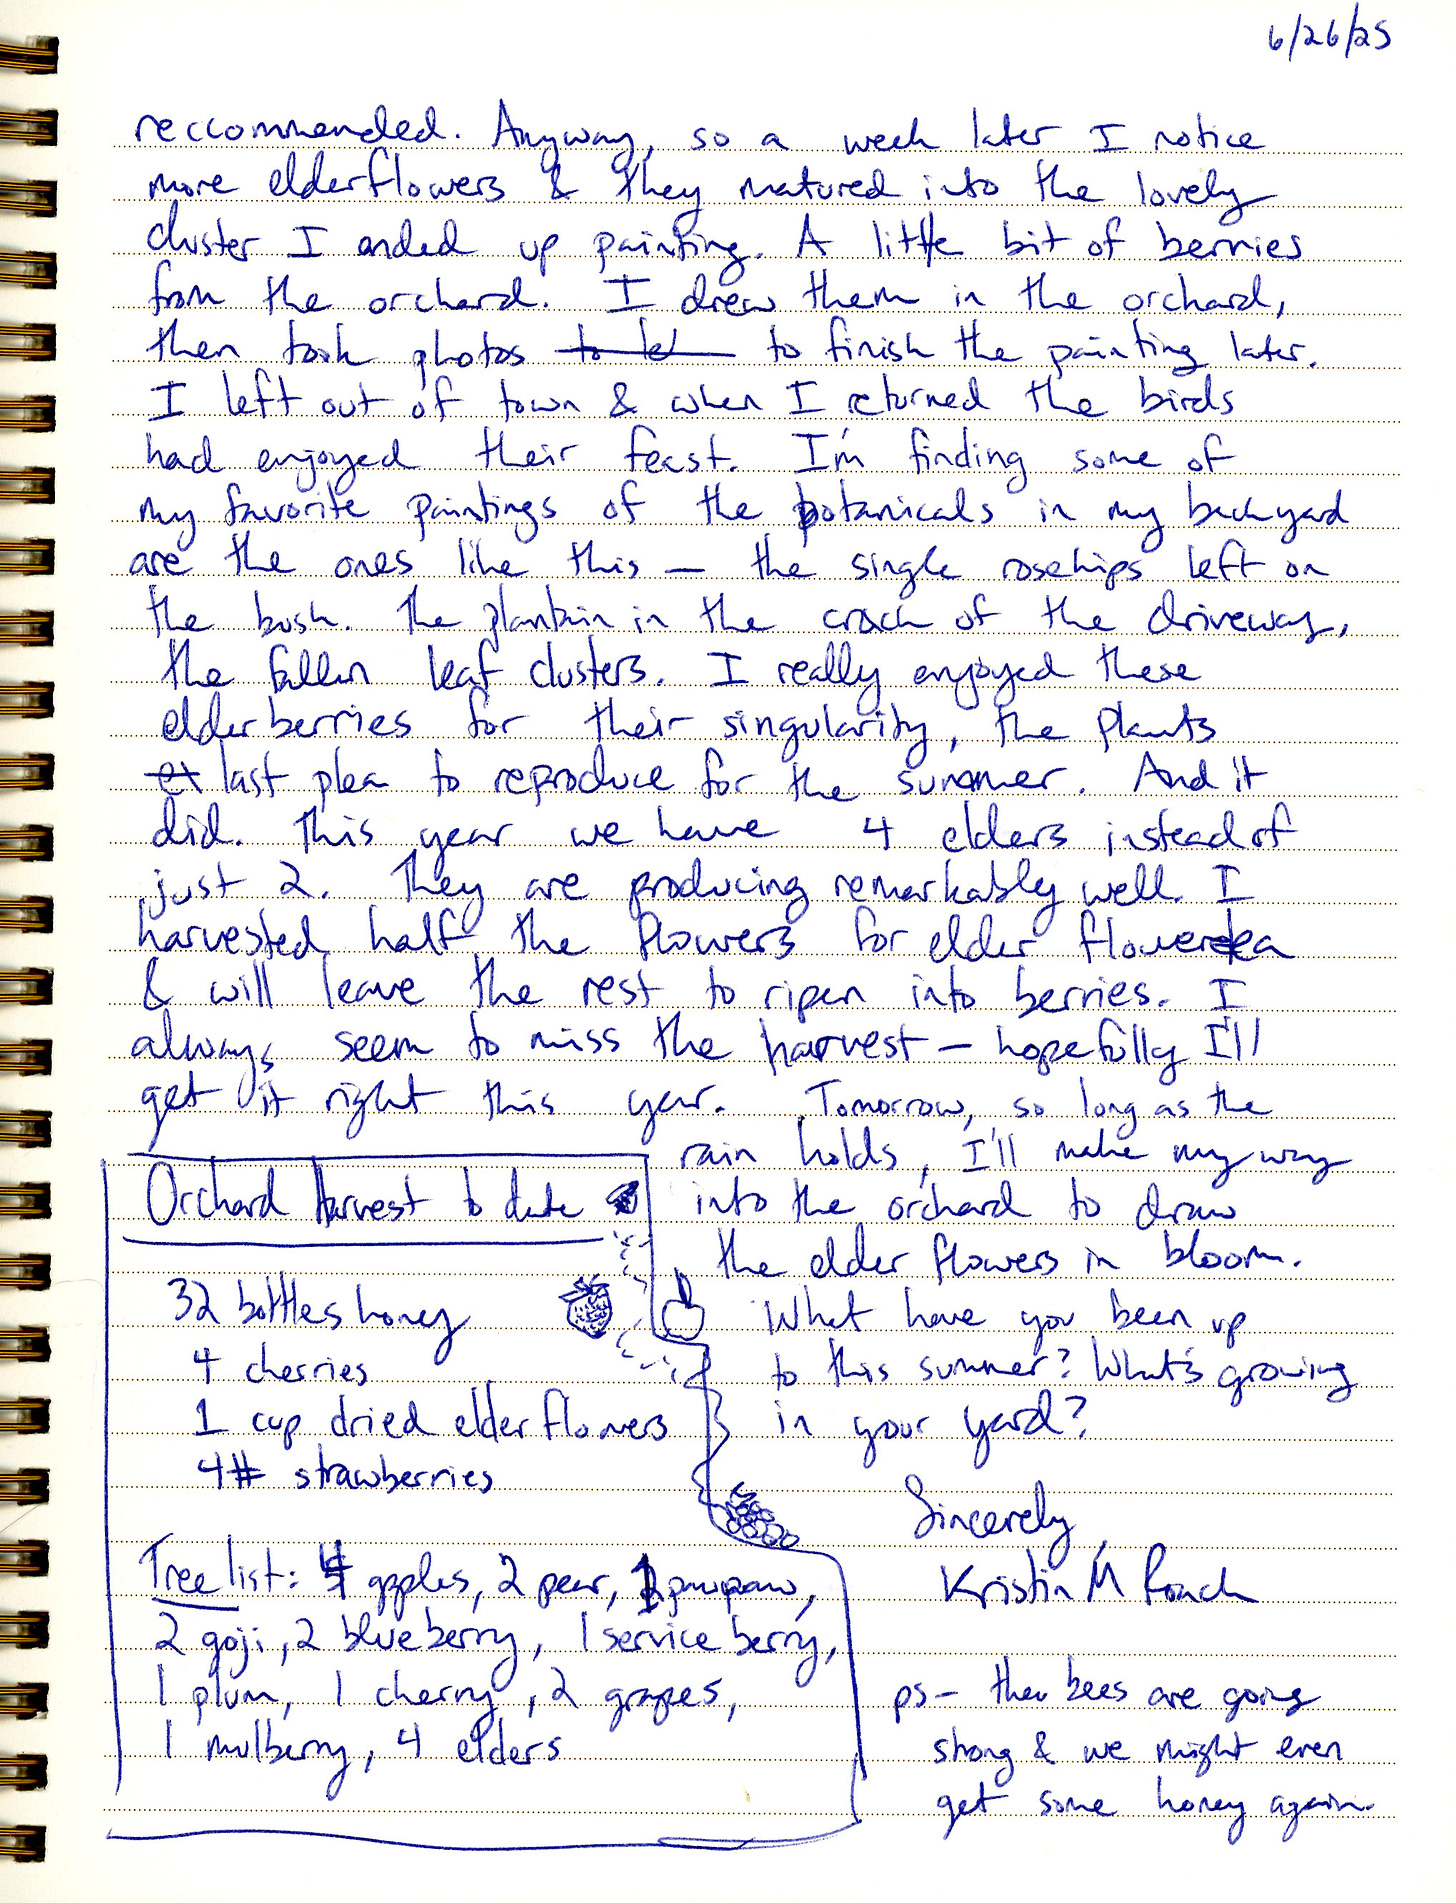 6/26/25
reccommended. Anyway, so a week later I notice
more elderflowers & they matured into the lovely
cluster I ended up painting. A little bit of berries
from the orchard. I drew them in the orchard,
then took photos to finish the painting later.
I left out of town & when I returned the birds
had enjoyed their feast. I'm finding some of
my favorite paintings of the botanicals in my backyard
are the ones like this — the single rosehips left on
the bush. The plantain in the crack of the driveway,
the fallen leaf clusters. I really enjoyed these
elderberries for their singularity, the plants
last plea to reproduce for the summer. And it
did. This year we have 4 elders instead of
just 2. They are producing remarkably well. I
harvested half the flowers for elder flower tea
& will leave the rest to ripen into berries. I
always seem to miss the harvest — hopefully I'll
get it right this year. Tomorrow, so long as the
rain holds, I'll make my way
into the orchard to draw
the elder flowers in bloom.
What have you been up
to this summer? What's growing
in your yard?
Sincerely,
Kristin M Roach
ps — the bees are going
strong & we might even
get some honey again.
Orchard Harvest to date
32 bottles honey
4 cherries
1 cup dried elder flowers
4# strawberries
Tree list: 4 apples, 2 pear, 1 pawpaw,
2 goji, 2 blueberry, 1 service berry,
1 plum, 1 cherry, 2 grapes,
1 mulberry, 4 elders